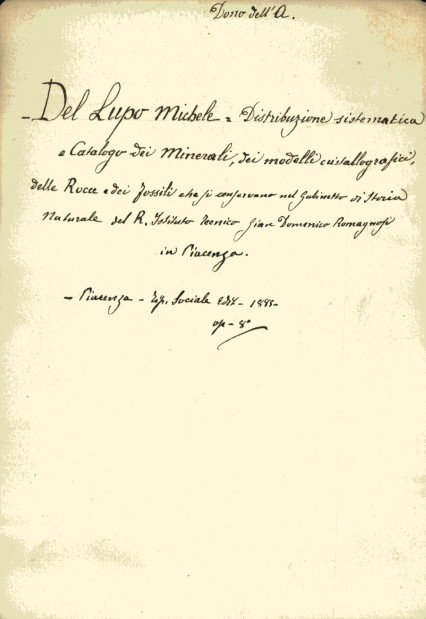 Dono dell'A.
- Del Lupo Michele = Distribuzione sistematica
e Catalogo dei Minerali, dei modelli cristallografici,
delle Rocce e dei Fossili che si conservano nel Gabinetto di Storia
Naturale del R. Istituto Tecnico Gian Domenico Romagnosi
in Piacenza.
- Piacenza - Tip. Sociale edit - 188 -
op - 8°